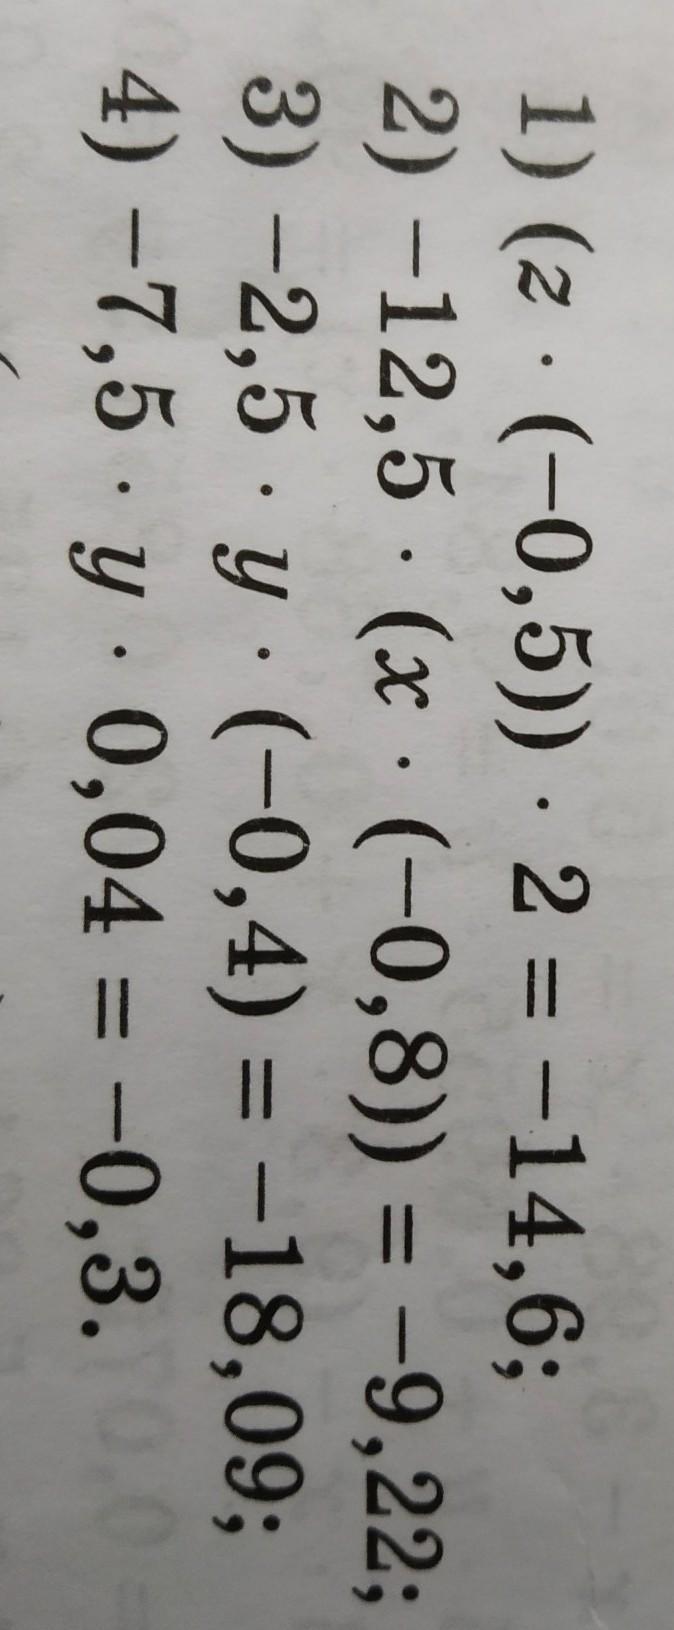 1) (z · (−0,5)) · 2 = −14,6;
2) −12,5 · (x · (−0,8)) = −9,22;
3) −2,5 · y · (−0,4) = −18,09;
4) −7,5 · y · 0,04 = −0,3.